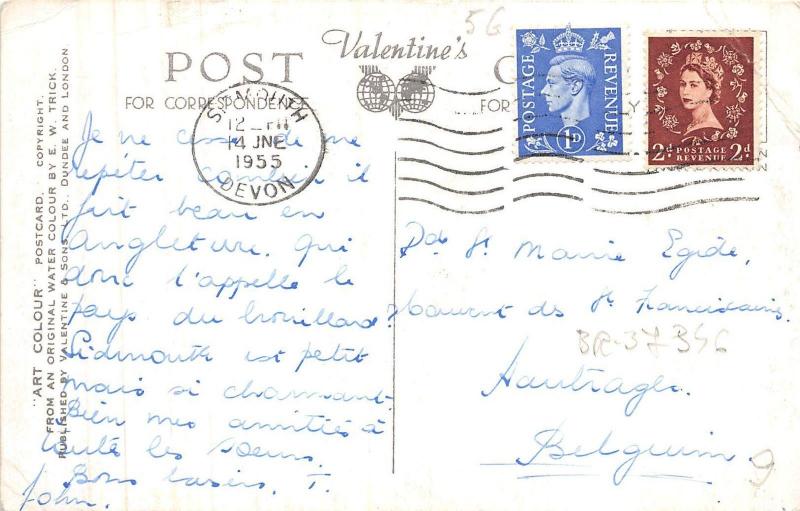 5G
Valentine's
POST
FOR CORRESPONDENCE
SIDMOUTH
12 - PM
4 JNE
1955
DEVON
POSTAGE
REVENUE
1D
2d POSTAGE REVENUE 2d
Je ne cesse de me
répéter combien il
fait beau en
Angleterre. Qui
donc l'appelle le
pays du brouillard?
Sidmouth est petit
mais si charmant.
Bien mes amitiés à
toute les soeurs.
Bons baisers, T.
John.
St. Marie Egide,
Couvent des St. Franciscains.
BR-37346
Hautrage.
Belguim.
9
"ART COLOUR" POSTCARD. COPYRIGHT.
FROM AN ORIGINAL WATER COLOUR BY E. W. TRICK.
PUBLISHED BY VALENTINE & SONS, LTD., DUNDEE AND LONDON